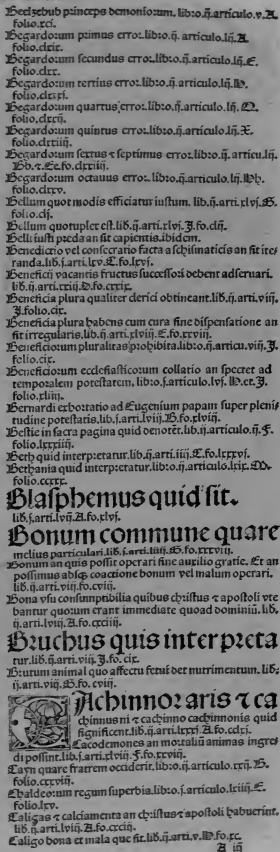 Beelzebub princeps demonioꝝum. libro.ij. articulo.v. A.
folio.xci.
Begardorum primus error. lib:o.ij. articulo.lij. A
folio.clxix.
Begardorum secundus error. lib:o.ij. articulo.lij. C.
folio.clxx.
Begardorum tertius error. lib:o.ij. articulo.lij.
folio.clxxi.
Begardorum quartus error. lib:o.ij. articulo.lij. Q.
folio.clxxij.
Begardorum quintus error. lib:o.ij. articulo.lij. X.
folio.clxxiiij.
Begardorum sextus ⁊ septimus error. lib:o.ij. articu.lij.
Bb. ⁊ Ee. fo. clxxiiij.
Begardorum octauus error. lib:o.ij. articulo.lij. Hh.
folio.clxxv.
Bellum quot modis efficiatur iustum. lib.ij. arti.xlvj. G.
folio.clj.
Bellum quotuplex est. lib.ij. arti.xlvj. J. fo.clij.
Belli iusti preda an sit capientis. ibidem.
Benedictio vel consecratio facta a schismaticis an sit ite
randa. lib.j. arti.lxv. C. fo.lxvj.
Beneficij vacantis fructus successori debent adseruari.
lib.ij. arti.xxij. D. fo.cxxix.
Beneficia plura qualiter clerici obtineant. lib.ij. arti.viij.
J. folio.cix.
Beneficia plura habens cum cura sine dispensatione an
sit irregularis. lib.ij. arti.xlviij. C. fo.xxviij.
Beneficiorum pluralitas prohibita. lib:o.ij. articu.viij. J.
folio.cix.
Beneficiorum ecclesiasticorum collatio an spectet ad
temporalem potestatem. lib:o.j. articulo.lvj. D. et. J.
folio.xliiij.
Bernardi exhortatio ad Eugenium papam super pleni
tudine potestatis. lib.j. arti.lviij. B. fo.xlvij.
Bestie in sacra pagina quid denotēt. lib.ij. articulo.ij. F.
folio.lxxiiij.
Beth quid interpretatur. lib.ij. arti.iiij. C. fo.lxxxvj.
Bethania quid interpretatur. lib:o.ij. articulo.lxix. M.
folio.ccxxx.
Blasphemus quid sit.
lib.j. arti.lvij. A. fo.xlvj.
Bonum commune quare
melius particulari. lib.j. arti.liiij. B. fo.xxxviij.
Bonum an quis possit operari sine auxilio gratie. Et an
possimus absqꝫ coactione bonum vel malum operari.
lib.ij. arti.viij. fo.cviij.
Bona vsu consumptibilia quibus christus ⁊ apostoli vte
bantur quorum erant immediate quoad dominiū. lib.
ij. arti.lvij. A. fo.cxciiij.
Bruchus quis interpreta
tur. lib.ij. arti.viij. J. fo.cix.
Brutum animal quo affectu fetui det nutrimentum. lib.
ij. arti.viij. B. fo.cviij.
CAchinnor aris ⁊ ca
chinnus ni ⁊ cachinno cachinnonis quid
significent. lib.ij. arti.lxxxj. F. fo.cclxj.
Cacodemones an mortaliū animas ingre
di possint. lib.j. arti.xlviij. F. fo.xxviij.
Cayn quare fratrem occiderit. lib:o.ij. articulo.xxij. B.
folio.cxxviij.
Chaldeorum regum superbia. lib:o.j. articulo.lxiiij. C.
folio.lxv.
Caligas ⁊ calciamenta an christus ⁊ apostoli habuerint.
lib.ij. arti.lviij. A. fo.cxciij.
Caligo bona et mala que sit. lib.ij. arti.v. D. fo.xc.
A iij